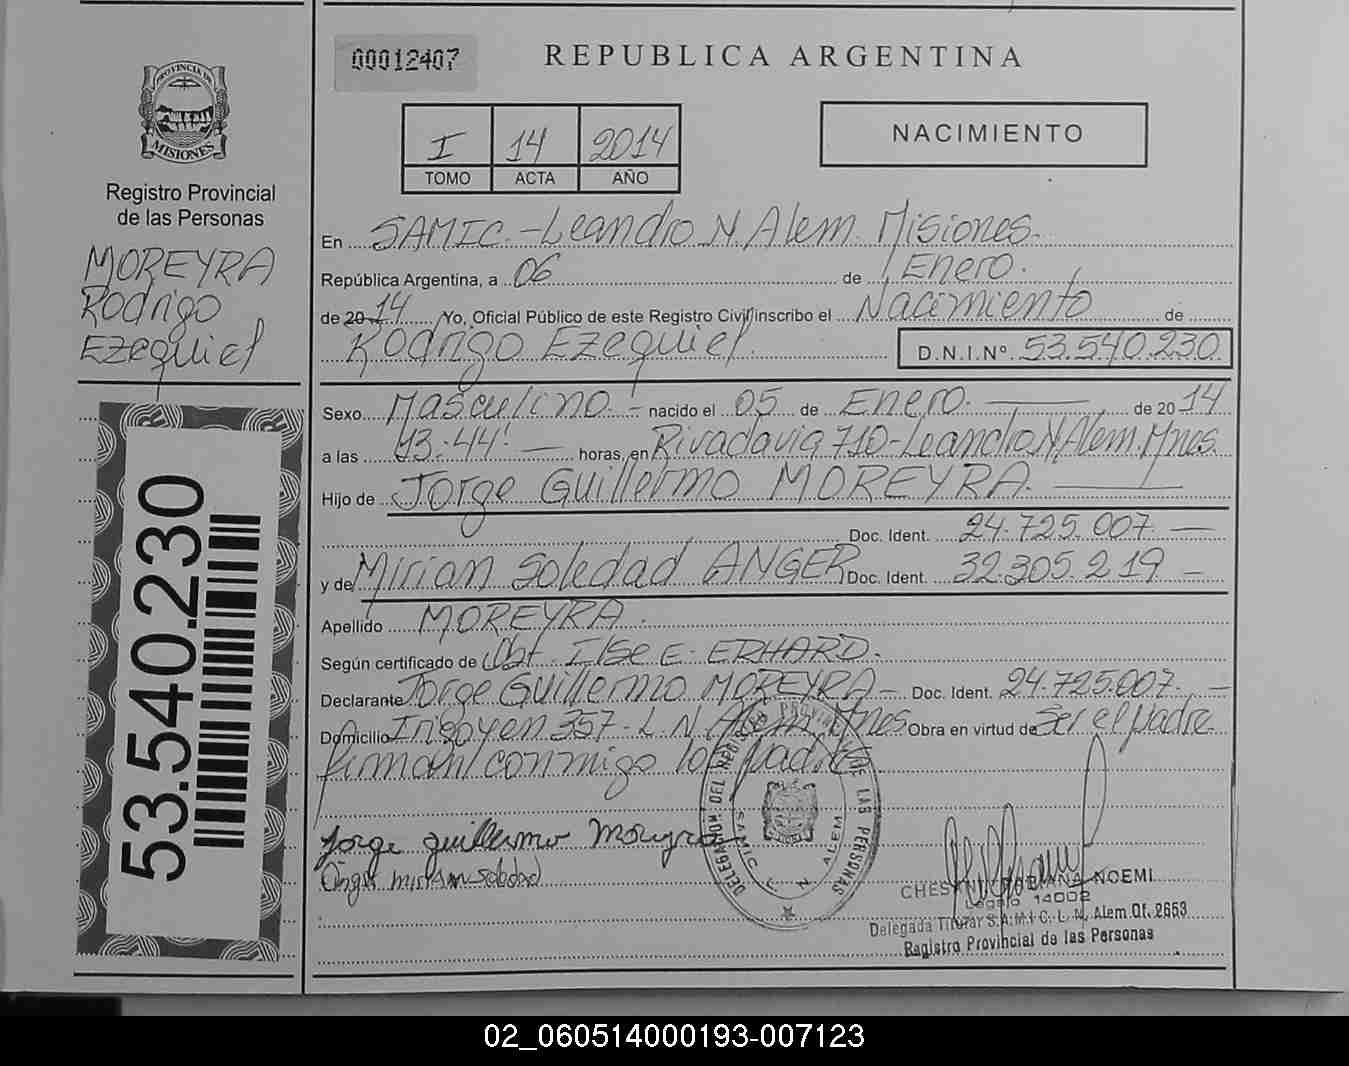 00012407
REPUBLICA ARGENTINA
PROVINCIA DE
MISIONES
Registro Provincial
de las Personas
MOREYRA
Rodrigo
Ezequiel
53.540.230
I 14 2014
TOMO ACTA AÑO
NACIMIENTO
En SAMIC.-Leandro N. Alem. Misiones.
República Argentina, a 06 de Enero.
de 2014 Yo, Oficial Público de este Registro Civil inscribo el Nacimiento de
Rodrigo Ezequiel. D.N.I.Nº. 53.540.230
Sexo Masculino.- nacido el 05 de Enero. de 2014
a las 13:44' horas, en Rivadavia 710-Leandro N Alem. Mnes.
Hijo de Jorge Guillermo MOREYRA.
Doc. Ident. 24.725.007.
y de Mirian Soledad ANGER Doc. Ident. 32.305.219
Apellido MOREYRA.
Según certificado de Obst. Ilse E. ERHARD.
Declarante Jorge Guillermo MOREYRA- Doc. Ident. 24.725.007.
Domicilio Irigoyen 357-L.N. Alem. Mnes Obra en virtud de Ser el padre
firman conmigo los padres
Jorge Guillermo Moreyra
Anger Miriam Soledad
DELEGACION DEL REGISTRO PROVINCIAL DE LAS PERSONAS
SAMIC L. N. ALEM
NOEMI
Legajo 14002
Delegada Titular S.A.M.I.C. L. N. Alem Of. 2653
Registro Provincial de las Personas
02_060514000193-007123